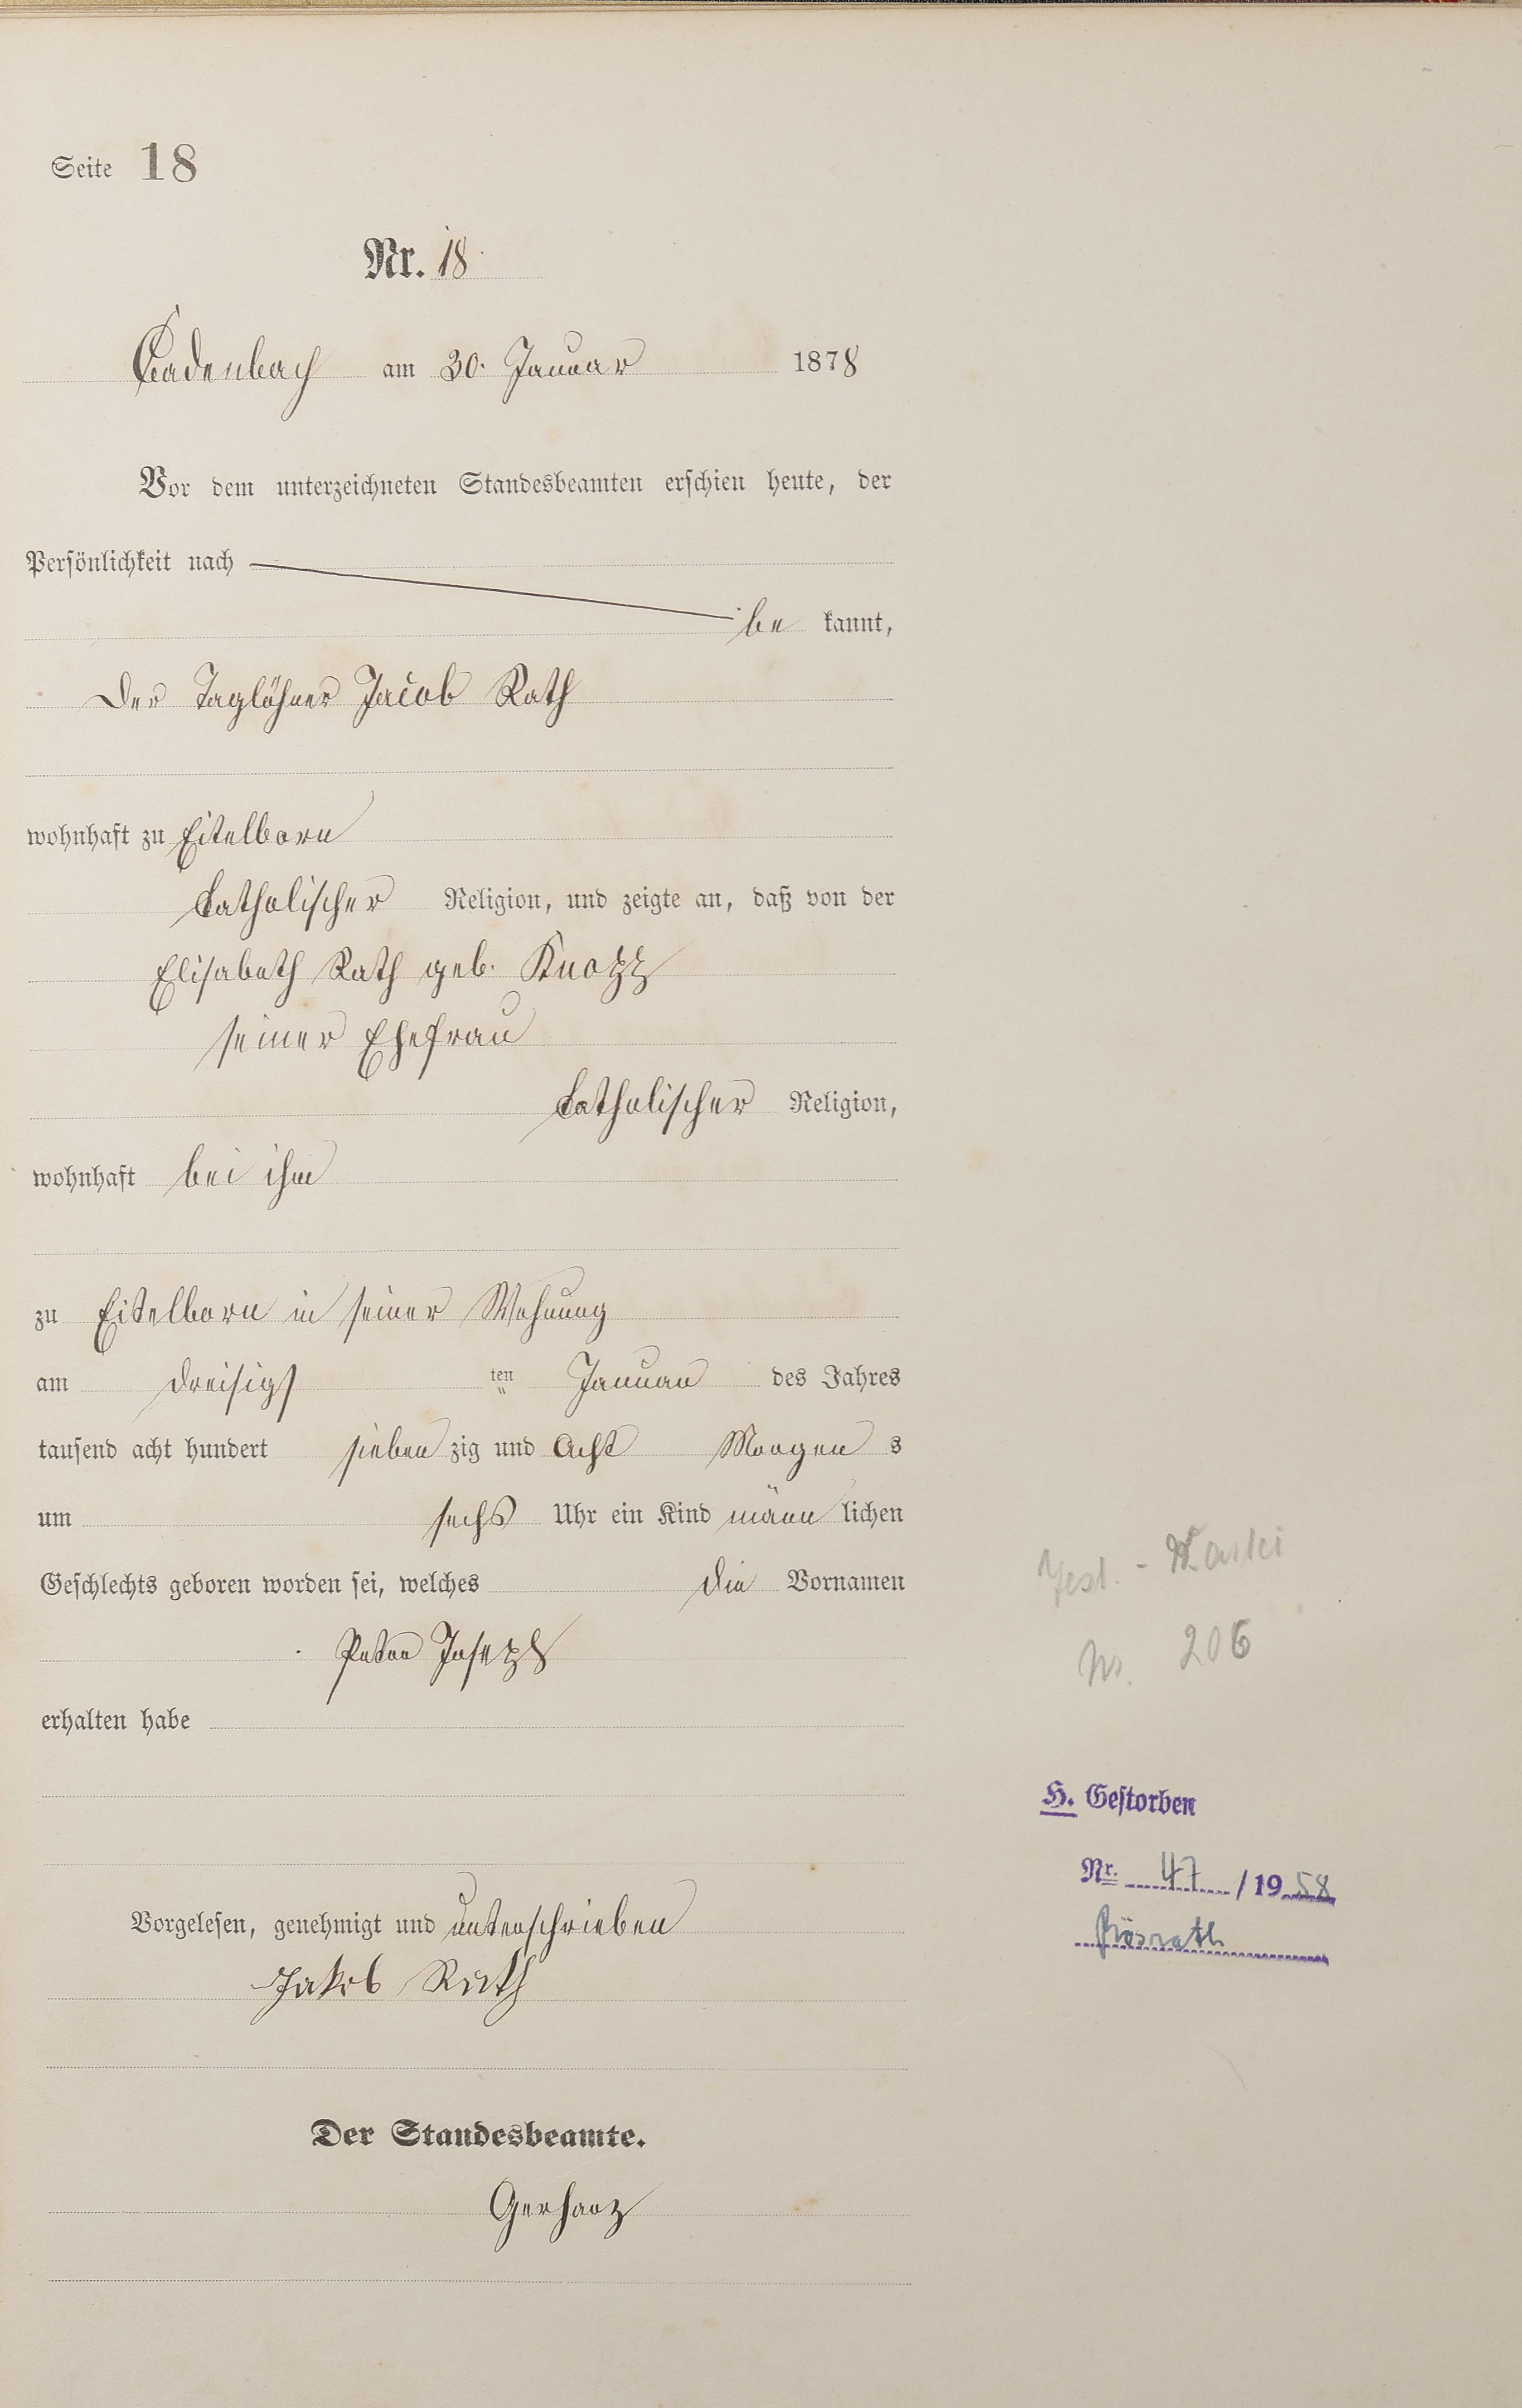 Seite 18
Nr. 18
Cadenbach am 30. Januar 1878
Vor dem unterzeichneten Standesbeamten erschien heute, der
Persönlichkeit nach
be kannt,
der Taglöhner Jacob Rath
wohnhaft zu Eitelborn
Catholischer Religion, und zeigte an, daß von der
Elisabeth Rath geb. Knopp
seiner Ehefrau
Catholischer Religion,
wohnhaft bei ihm
zu Eitelborn in seiner Wohnung
am dreisigs ten Januar des Jahres
tausend acht hundert sieben zig und Acht Morgen s
um sechs Uhr ein Kind männ lichen
Geschlechts geboren worden sei, welches die Vornamen
Peter Joseph
erhalten habe
Vorgelesen, genehmigt und unterschrieben
Jakob Rath
Der Standesbeamte.
Gerharz
Nr. 206
H. Gestorben
Nr. 47 / 1958
Rösrath